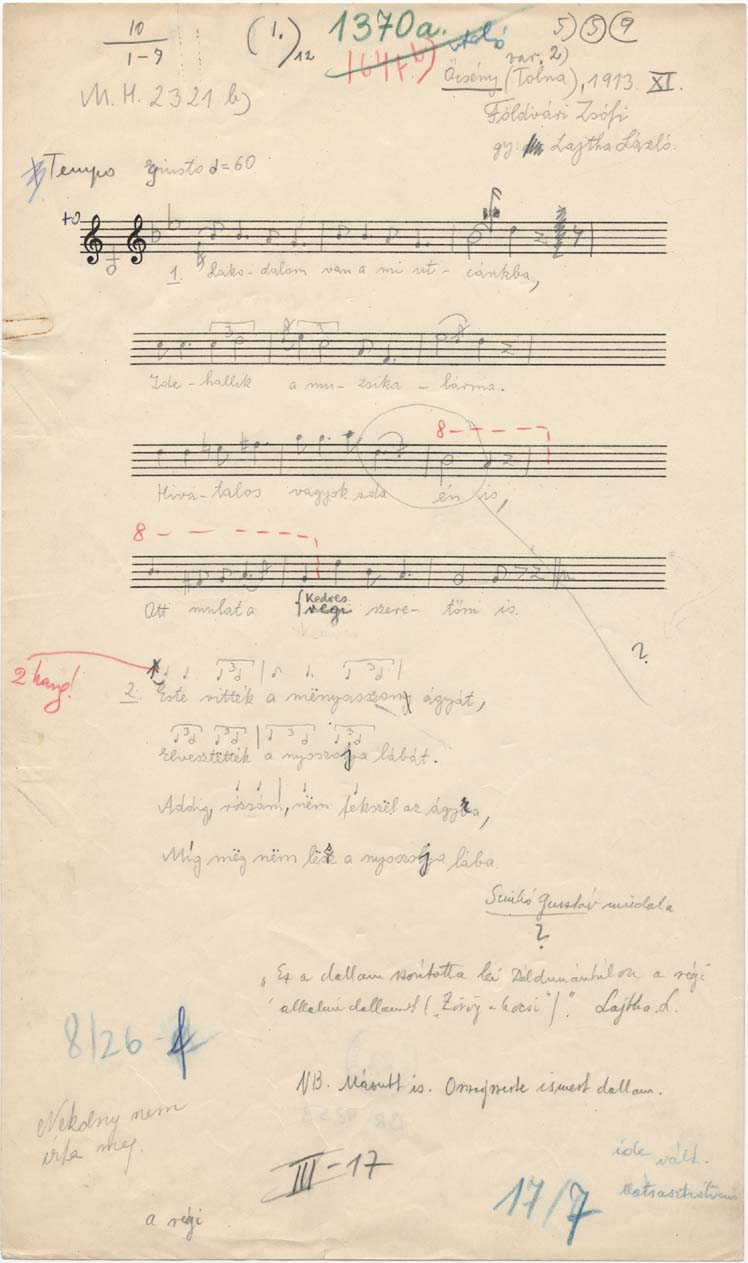 10
1-9
(1.)12
1370a.
1647.b)
utolsó
5) 5 9
M. H. 2321 b)
var. 2)
Őcsény (Tolna), 1913 XI.
Földvári Zsófi
gy. Lajtha László.
Tempo giusto = 60
1. Lako-dalom van a mi ut-cánkba,
3 3
Ide-hallik a mu-zsika-lárma.
8
Hiva-talos vagyok oda én is,
8
Ott mulat a
Kedves
régi
szere-tőm is.
?
2 hang!
3 3
2. Este vitték a mënyasszony ágyát,
3 3 3 3
Elvesztëtték a nyoszolya lábát.
Addig, rózsám, nëm fekszël az ágyba,
Míg mëg nëm lësz a nyoszolya lába.
Szinkó Gusztáv műdala
?
„Ez a dallam szorította ki Déldunántúlon a régi
alkalmi dallamot („Zörög a kocsi")". Lajtha L.
8/26-
NB. Másutt is. Országszerte ismert dallam.
nem
írta meg.
III-17
17/7
ide vált.
a régi